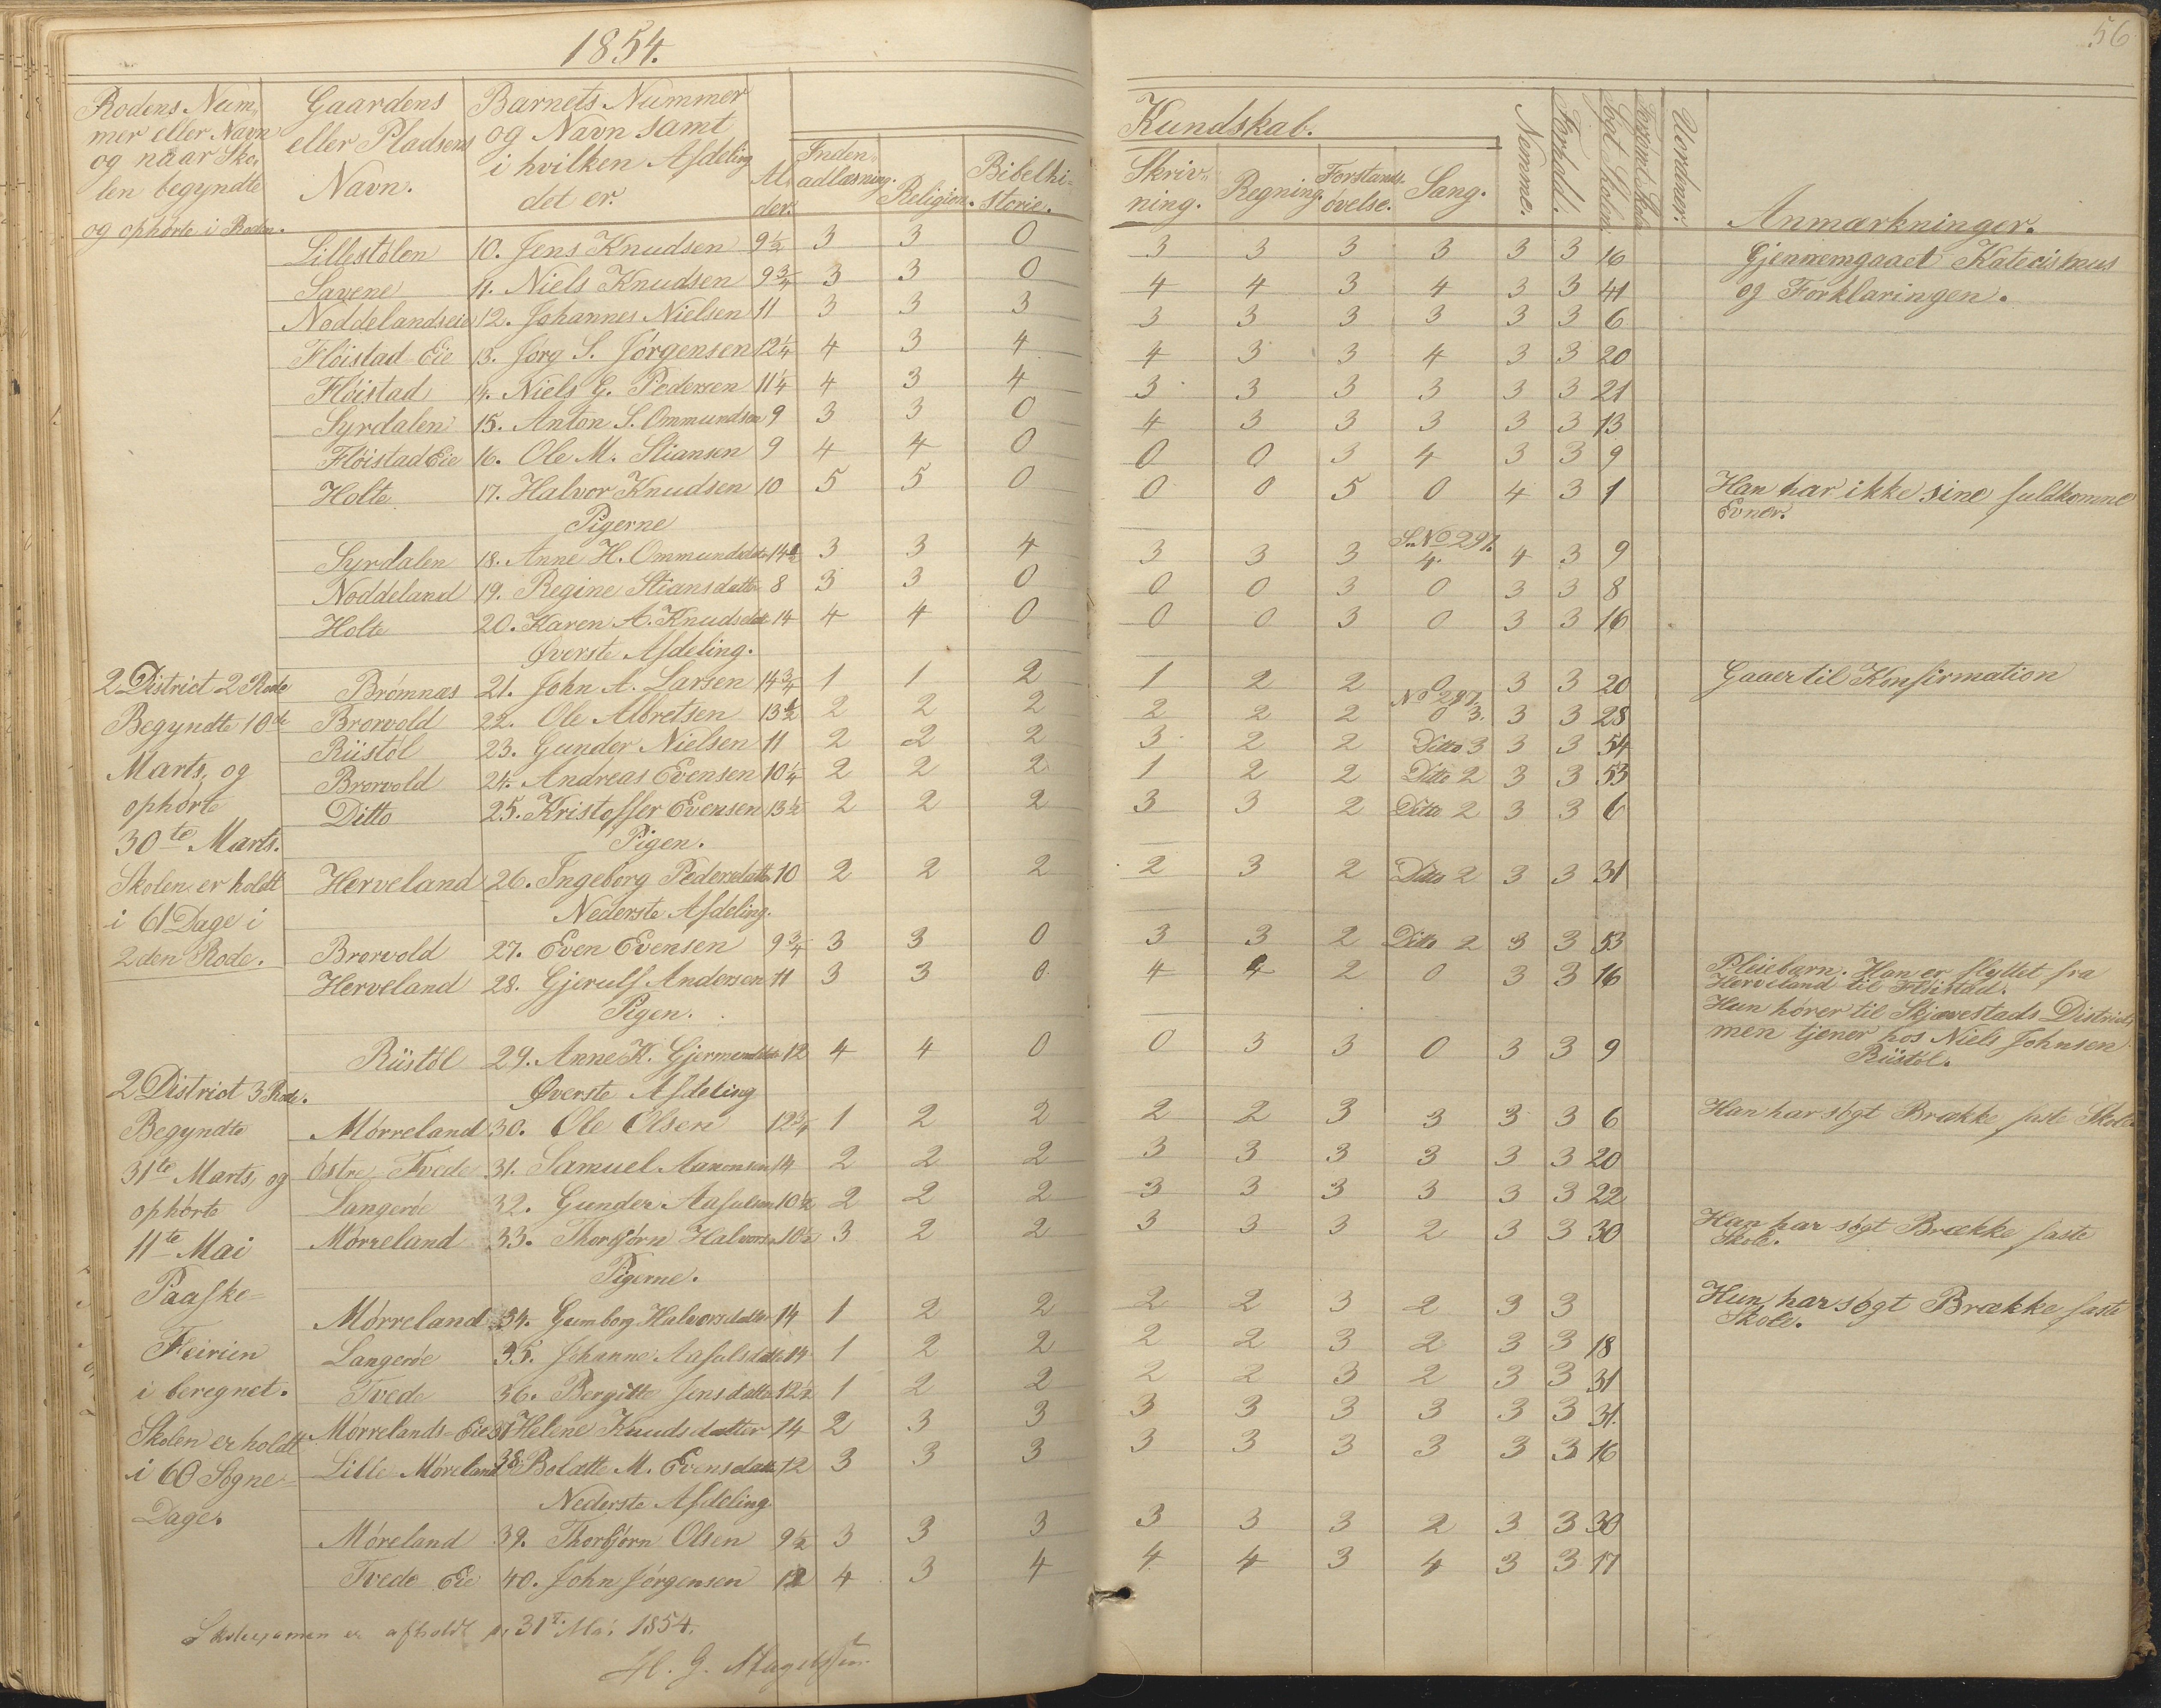 1854.
56
Rodens Num„
mer eller Navn
og naar Sko„
len begyndte
og ophørte i Roden.
Gaardens
eller Pladsens
Navn.
Barnets Nummer
og Navn samt
i hvilken Afdeling
det er.
Al„
der.
Inden„
adlæsning.
Religion.
Bibelhi„
storie.
Kundskab.
Skriv„
ning.
Regning.
Forstands„
øvelse.
Sang.
Nemme.
Forhold.
Søgt Skolen
Forsømt Skole
Uordener.
Anmærkninger.
Lillestølen 10. Jens Knudsen 9½ 3 3 0 3 3 3 3 3 3 16 Gjennemgaaet Katecismus
Savene 11. Niels Knudsen 9¾ 3 3 0 4 4 3 4 3 3 41 og Forklaringen.
Noddelandseie 12. Johannes Nielsen 11 3 3 3 3 3 3 3 3 3 6
Fløistad Eie 13. Jorg S. Jørgensen 12¼ 4 3 4 4 3 3 4 3 3 20
Fløistad 14. Niels G. Pedersen 11¼ 4 3 4 3 3 3 3 3 3 21
Syrdalen 15. Anton S. Ommundsen 9 3 3 0 4 3 3 3 3 3 13
Fløistad Eie 16. Ole M. Stiansen 9 4 4 0 0 0 3 4 3 3 9
Holte 17. Halvor Knudsen 10 5 5 0 0 0 5 0 4 3 1 Han har ikke sine fuldkomne
Evner.
Pigerne
Syrdalen 18. Anne H. Ommundsdtr 14½ 3 3 4 3 3 3 S. No 297. 4. 4 3 9
Noddeland 19. Regine Stiansdatter 8 3 3 0 0 0 3 0 3 3 8
Holte 20. Karen A. Knudsdatt 14 4 4 0 0 0 3 0 3 3 16
Øverste Afdeling.
2 District 2 Rode Brømnæs 21. John A. Larsen 14¾ 1 1 2 1 2 2 0 3 3 20 Gaaer til Konfirmation
Begyndte 10de Brorvold 22. Ole Albretsen 13½ 2 2 2 2 2 2 No 287. 0 3. 3 3 28
Riistøl 23. Gunder Nielsen 11 2 2 2 3 2 2 Ditto 3 3 3 54
Marts, og Brorvold 24. Andreas Evensen 10¼ 2 2 2 1 2 2 Ditto 2 3 3 53
ophørte Ditto 25. Kristoffer Evensen 13½ 2 2 2 3 3 2 Ditto 2 3 3 6
30te Marts. Pigen.
Skolen er holdt Herveland 26. Ingeborg Pedersdatt 10 2 2 2 2 3 2 Ditto 2 3 3 31
i 61 Dage i Nederste Afdeling.
2den Rode. Brorvold 27. Even Evensen 9¾ 3 3 0 3 3 2 Ditto 2 3 3 53
Herveland 28. Gjerulf Andersen 11 3 3 0 4 4 2 0 3 3 16 Pleiebarn. Han er flyttet fra
Herveland til Fløistad.
Pigen.
Hun hører til Skjævestads District
men tjener hos Niels Johnsen
Riistøl.
Riistøl 29. Anne K. Gjermundsdatter 12 4 4 0 0 3 3 0 3 3 9
2 District 3 Rode. Øverste Afdeling
Begyndte Mørreland 30. Ole Olsen 12¾ 1 2 2 2 2 3 3 3 3 6 Han har søgt Brække faste Skole
31te Marts, og Østre Tvede 31. Samuel Aanonsen 14 2 2 2 3 3 3 3 3 3 20
ophørte Langerøe 32. Gunder Aasulsen 10½ 2 2 2 3 3 3 3 3 3 22
11te Mai Mørreland 33. Thorbjørn Halvorsn 10½ 3 2 2 3 3 3 2 3 3 30 Han har søgt Brække faste
Skole.
Pigerne.
Paaske=
Mørreland 34. Gunborg Halvorsdatter 14 1 2 2 2 2 3 2 3 3 Hun har søgt Brække faste
Skole.
Feirien Langerøe 35. Johanne Aasulsdatt 14 1 2 2 2 2 3 2 3 3 18
i beregnet. Tvede 36. Bergitte Jensdatter 12½ 1 2 2 2 2 3 2 3 3 31
Skolen er holdt Mørrelands=Eie 37 Helene Knudsdatter 14 2 3 3 3 3 3 3 3 3 31.
i 60 Søgne= Lille Møreland 38. Bolette M. Evensdatt 12 3 3 3 3 3 3 3 3 3 16
Dage. Nederste Afdeling
Møreland 39. Thorbjørn Olsen 9½ 3 3 3 3 3 3 2 3 3 30
Tvede Eie 40. John Jørgensen 12 4 3 4 4 4 3 4 3 3 17
Skolexamen er afholdt p. 31te Mai 1854.
H. G. Magelssen